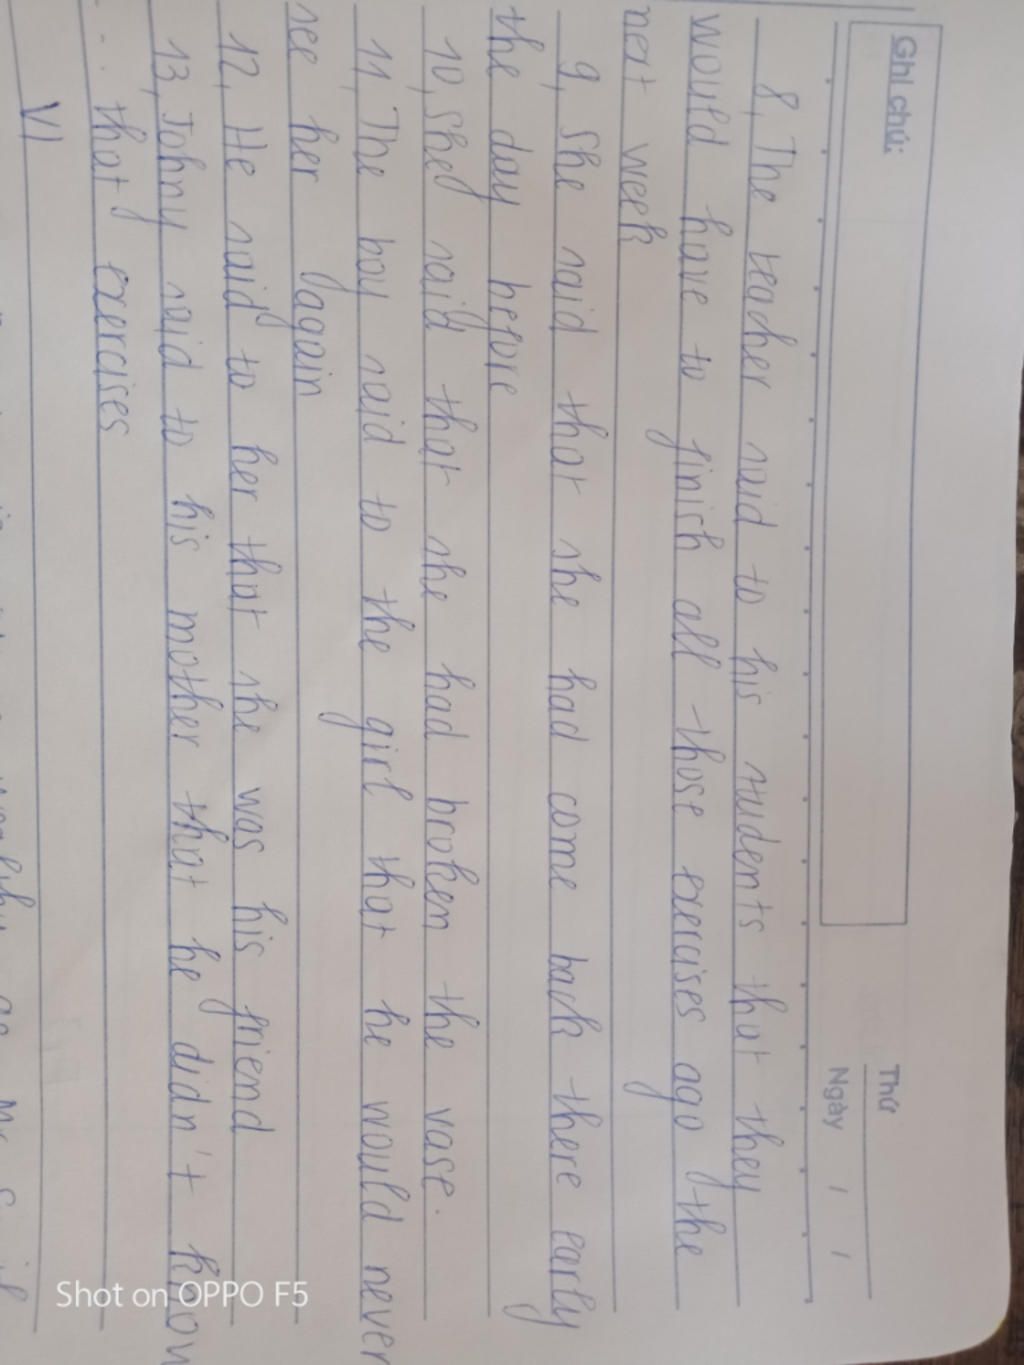 Ghi chú:
Thứ
Ngày / /
8, The teacher said to his students that they
would have to finish all those exercises ago the
next week
9, She said that she had come back there early
the day before
10, She said that she had broken the vase.
11, The boy said to the girl that he would never
see her again
12, He said to her that she was his friend
13, Johny said to his mother that he didn't know
that exercises
VI
Shot on OPPO F5